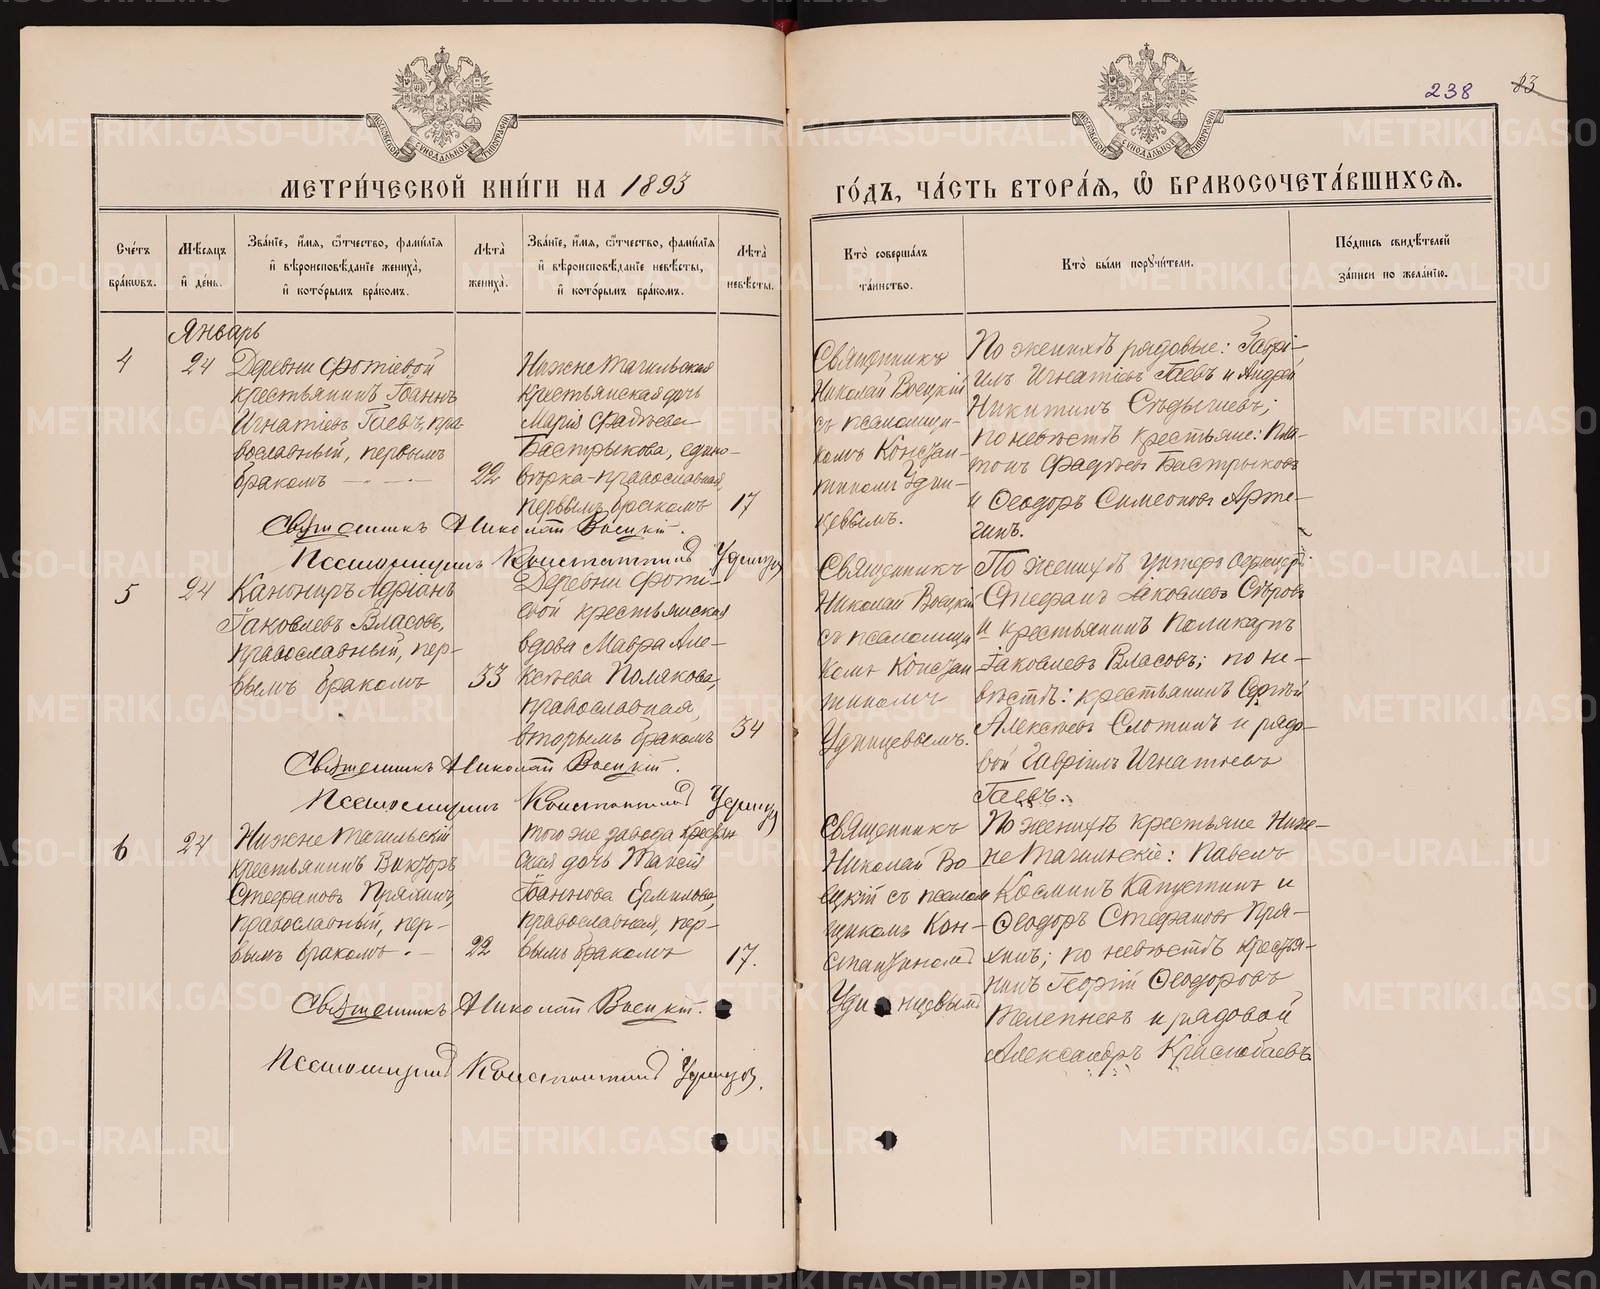 238 83
МЕТРИ́ЧЕСКОЙ КНИ́ГИ НА 1893
ГО́ДЪ, ЧА́СТЬ ВТОРА́Я, Ѿ БРАКОСОЧЕТА́ВШИХСЯ.
Сче́тъ бра́кωвъ.
Мѣ́сяцъ и҆ де́нь.
Зва́нїе, и҆́мя, ѻ҆́тчество, фами́лїя
и҆ вѣроисповѣ́данїе жениха̀,
и҆ кото́рымъ бра́комъ.
Лѣ́та̀ жениха̀.
Зва́нїе, и҆́мя, ѻ҆́тчество, фами́лїя
и҆ вѣроисповѣ́данїе невѣ́сты,
и҆ кото́рымъ бра́комъ.
Лѣ́та̀ невѣ́сты.
Кто̀ соверша́лъ
та́инство.
Кто̀ бы́ли поручи́тели.
По́дпись свидѣ́телей
за́писи по жела́нїю.
Январь
4
24
Деревни Фотіевой
крестьянинъ Іоаннъ
Игнатіевъ Гаевъ, пра-
вославный, первымъ
бракомъ
22
Нижне Тагильская
крестьянская дочь
Марія Фадѣева
Бастрыкова, едино-
вѣрка-православная,
первымъ бракомъ
17
Священникъ
Николай Восцкій
съ псаломщи-
комъ Констан-
тиномъ Удин-
цевымъ.
По женихѣ рядовые: Гаврі-
илъ Игнатіевъ Гаевъ и Андрей
Никитинъ Сѣдышевъ;
по невѣстѣ крестьяне: Пла-
тонъ Фадѣевъ Бастрыковъ
и Ѳеодоръ Симеоновъ Арте-
гинъ.
Священникъ Николай Восцкій.
Псаломщикъ Константинъ Удинцовъ
5
24
Канониръ Адріанъ
Іаковлевъ Власовъ,
православный, пер-
вымъ бракомъ
33
Деревни Фоті-
евой крестьянская
вдова Мавра Але-
ксѣева Полякова,
православная,
вторымъ бракомъ
34
Священникъ
Николай Восцкій
съ псаломщи
комъ Констан
тиномъ
Удинцевымъ.
По женихѣ унтеръ офицеръ
Стефанъ Іаковлевъ Сѣровъ
и крестьянинъ Поликарпъ
Іаковлевъ Власовъ; по не-
вѣстѣ: крестьянинъ Сергѣй
Алексѣевъ Слотинъ и рядо-
вой Гавріилъ Игнатіевъ
Гаевъ.
Священникъ Николай Восцкій.
Псаломщикъ Константинъ Удинцовъ
6
24
Нижне Тагильскій
крестьянинъ Викторъ
Стефановъ Пряхинъ,
православный, пер-
вымъ бракомъ.
22
того же завода крестьян
ская дочь Таисія
Іоаннова Ермилова,
православная, пер-
вымъ бракомъ
17.
Священникъ
Николай Во-
сцкій съ псалом
щикомъ Кон-
стантиномъ
Удинцевымъ
По женихѣ крестьяне Ниж-
не Тагильскіе: Павелъ
Косминъ Капустинъ и
Ѳеодоръ Стефановъ Пря-
хинъ; по невѣстѣ крестья-
нинъ Георгій Ѳеодоровъ
Телепневъ и рядовой
Александръ Краснобаевъ.
Священникъ Николай Восцкій.
Псаломщикъ Константинъ Удинцовъ.
METRIKI.GASO-URAL.RU